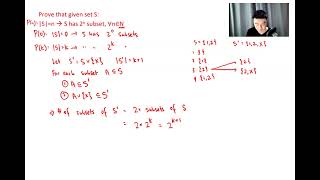 Prove that given set S:
P(n): |S|=n → S has 2ⁿ subset, ∀n∈ℕ
P(0): |S|=0 → S has 2⁰ subsets
P(k): |S|=k → " 2ᵏ "
Let S' = S ∪ {x} |S'|=k+1
For each subset A⊆S
① A ⊆ S'
② A∪{x} ⊆ S'
⇒ # of subsets of S' = 2× subsets of S
= 2 × 2ᵏ = 2ᵏ⁺¹
S = {1,2}
S' = {1,2,x}